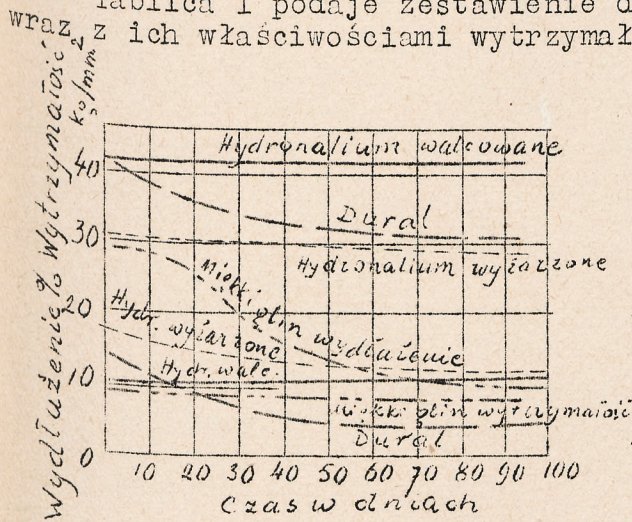 Tablica I podaje zestawienie d
wraz z ich właściwościami wytrzymał
Wydłużenie % Wytrzymałość kg/mm²
Hydronalium walcowane
40
Dural
30
Hydronalium wyżarzone
Miękki glin wydłużenie
20
Hydr. wyżarzone
Hydr. walc.
10
Miękki glin wytrzymałość
Dural
0
10 20 30 40 50 60 70 80 90 100
Czas w dniach